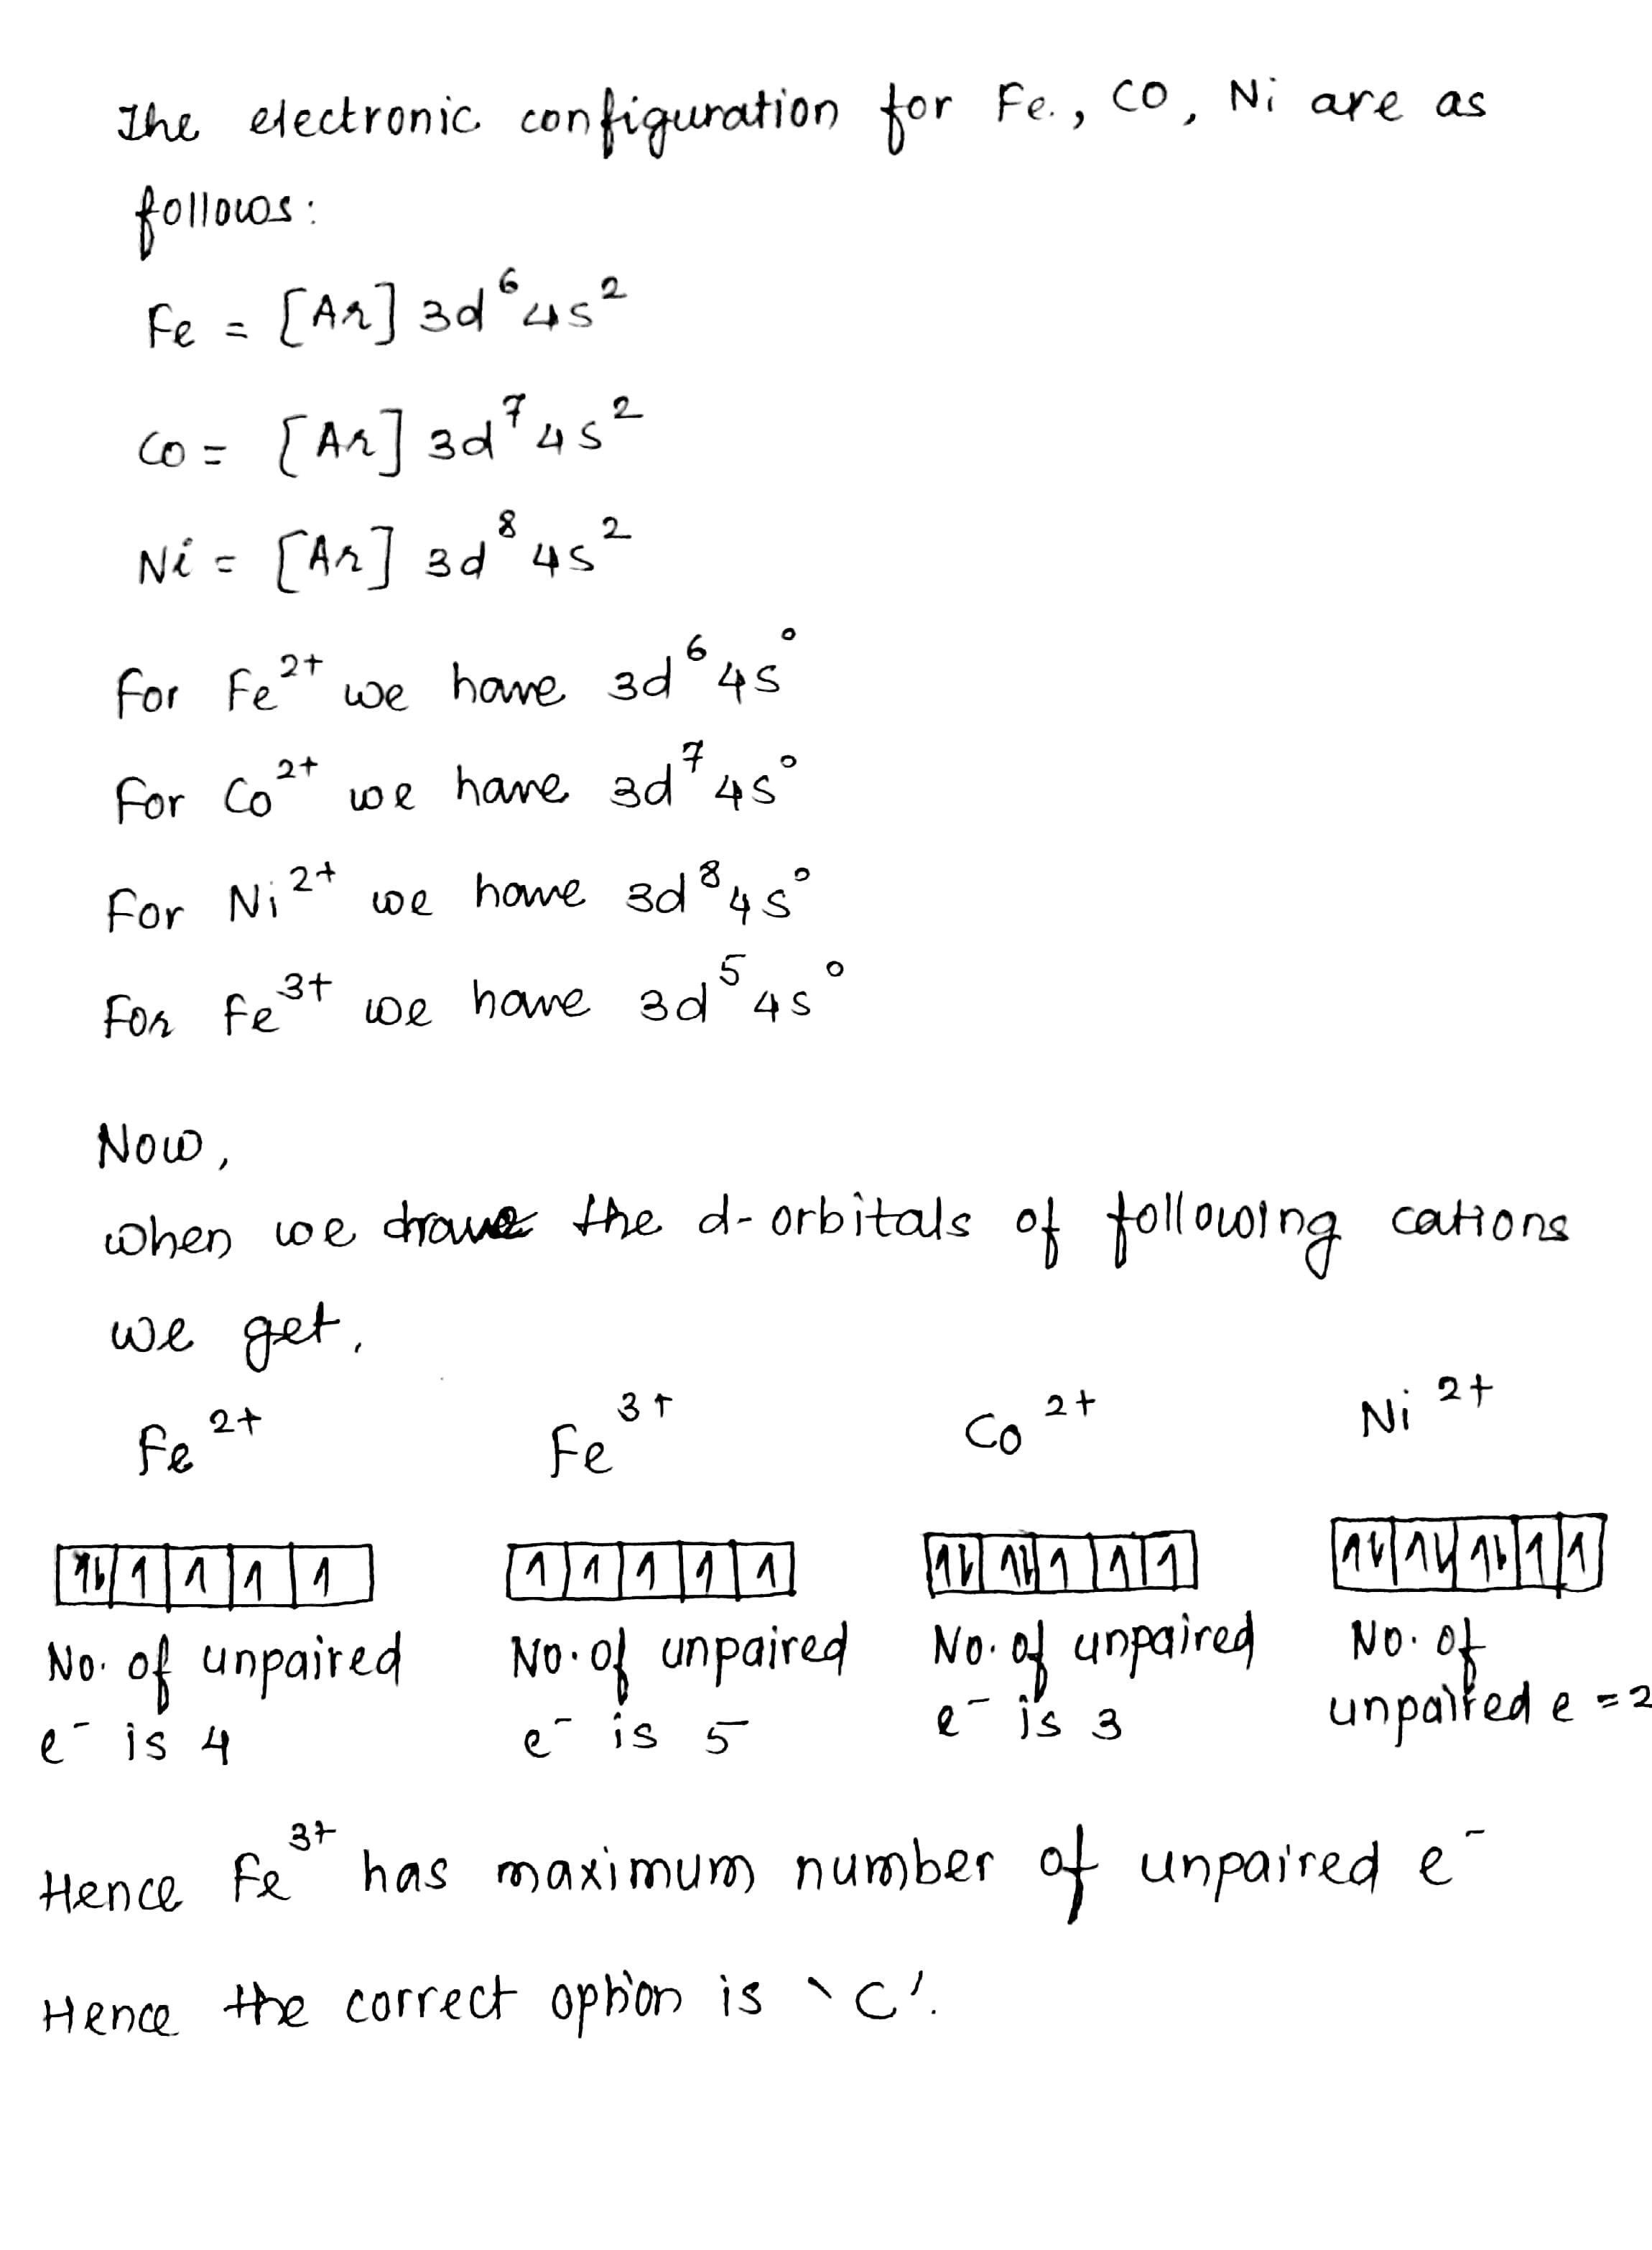 The electronic configuration for Fe., CO, Ni are as
follows:
Fe = [Ar] 3d⁶4s²
Co = [Ar] 3d⁷4s²
Ni = [Ar] 3d⁸4s²
For Fe²⁺ we have 3d⁶4s⁰
For Co²⁺ we have 3d⁷4s⁰
For Ni²⁺ we have 3d⁸4s⁰
For Fe³⁺ we have 3d⁵4s⁰
Now,
when we the d-orbitals of following cations
we get.
Fe²⁺ Fe³⁺ Co²⁺ Ni²⁺
↿⇂ ↿ ↿ ↿ ↿ ↿ ↿ ↿ ↿ ↿ ↿⇂ ↿⇂ ↿ ↿ ↿ ↿⇂ ↿⇂ ↿⇂ ↿ ↿
No. of unpaired No. of unpaired No. of unpaired No. of
e⁻ is 4 e⁻ is 5 e⁻ is 3 unpaired e = 2
Hence Fe³⁺ has maximum number of unpaired e⁻
Hence the correct option is 'C'.